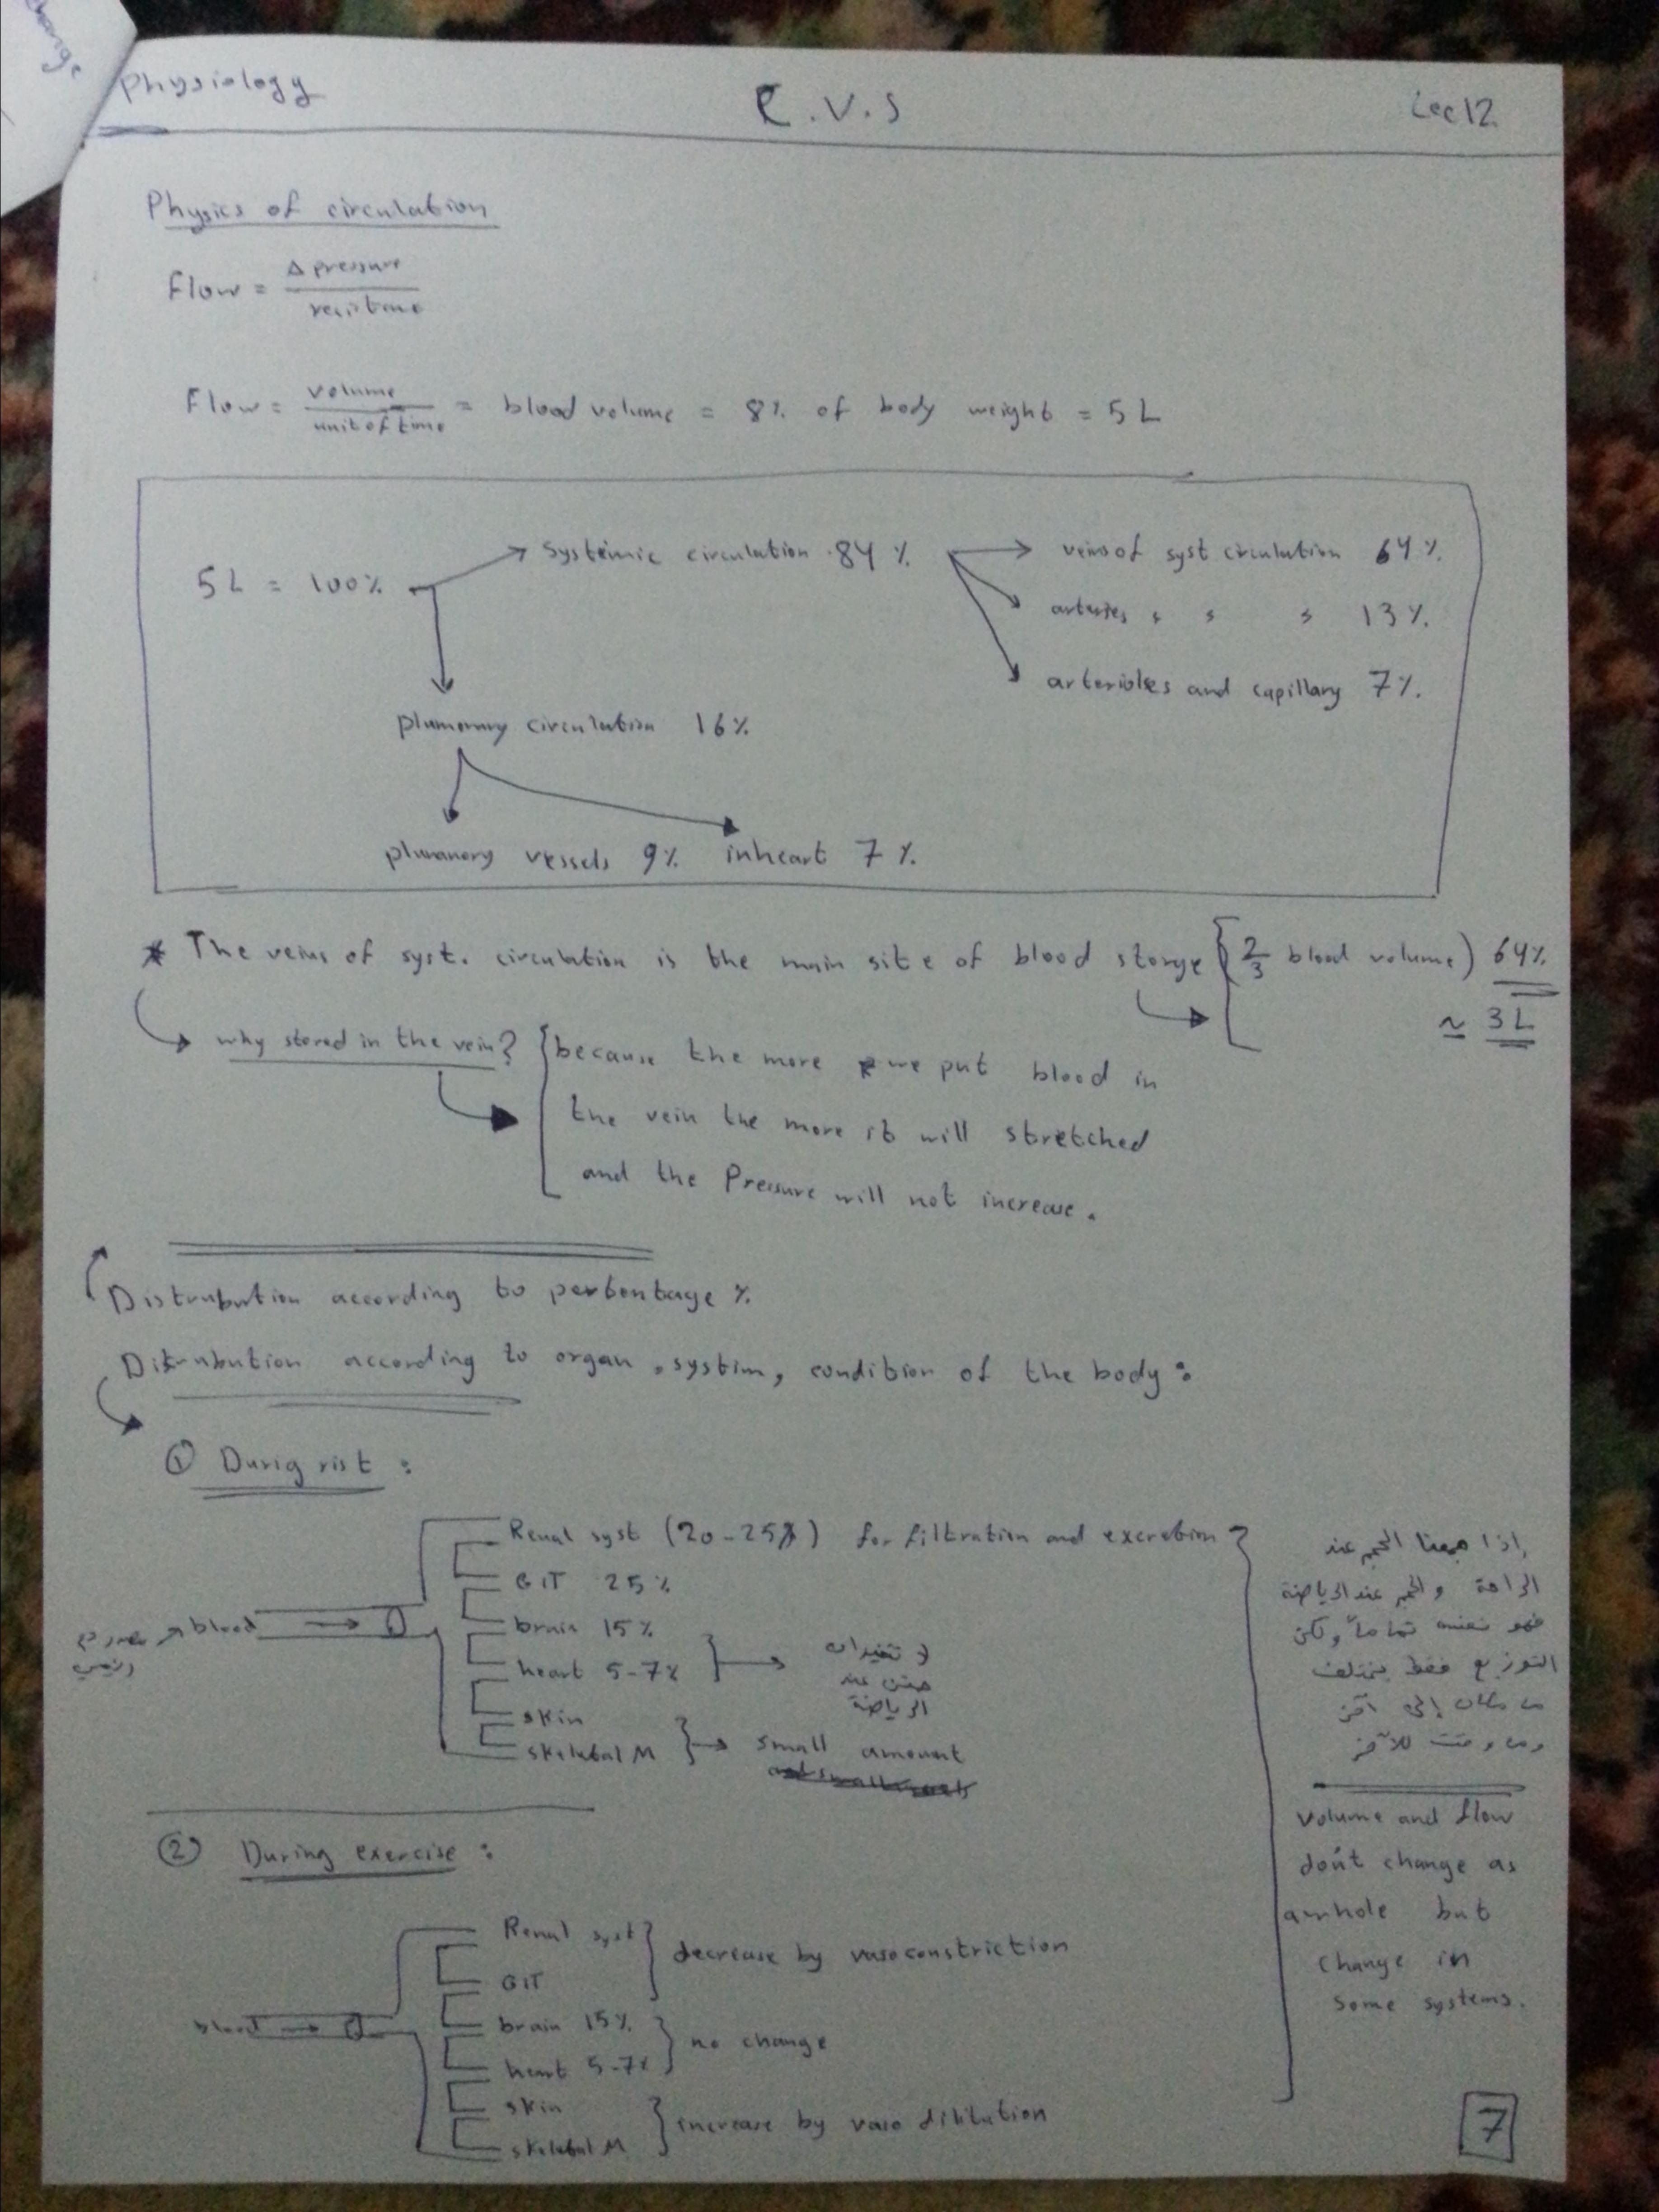 change
Physiology
C.V.S
Lec 12
Physics of circulation
Flow = Δ pressure / resistance
Flow = volume / unit of time = blood volume = 8% of body weight = 5 L
5 L = 100%
systemic circulation 84 %
veins of syst circulation 64 %
arteries 13 %
arterioles and capillary 7 %
plumonary circulation 16 %
plumanory vessels 9% inheart 7 %
* The veins of syst. circulation is the main site of blood storge ( 2/3 blood volume) 64%
≃ 3 L
why stored in the vein? because the more we put blood in
the vein the more it will stretched
and the Pressure will not increase.
Distrubution according to perbentage %
Distrubution according to organ, systim, condition of the body :
① Durig rist :
Renal syst (20-25%) for filtration and excretion
GIT 25 %
blood
brain 15 %
heart 5-7%
لا تغيرات
حتى عند
الرياضة
skin
skelebal M
small amount
إذا جمعنا الحجم عند
الراحة والحجم عند الرياضة
فهو نفسه تماماً ولكن
التوزيع فقط يختلف
من مكان إلى آخر
ومن وقت للآخر
volume and flow
don't change as
awhole but
change in
some systems.
② During exercise :
Renal syst
GIT
decrease by vasoconstriction
blood
brain 15%
heart 5-7%
no change
skin
skelebal M
increase by vaso dilitation
7